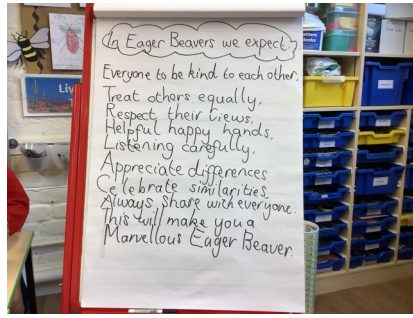 In Eager Beavers we expect:
Everyone to be kind to each other.
Treat others equally.
Respect their views.
Helpful happy hands.
Listening carefully.
Appreciate differences
Celebrate similarities.
Always share with everyone.
This will make you a
Marvellous Eager Beaver.